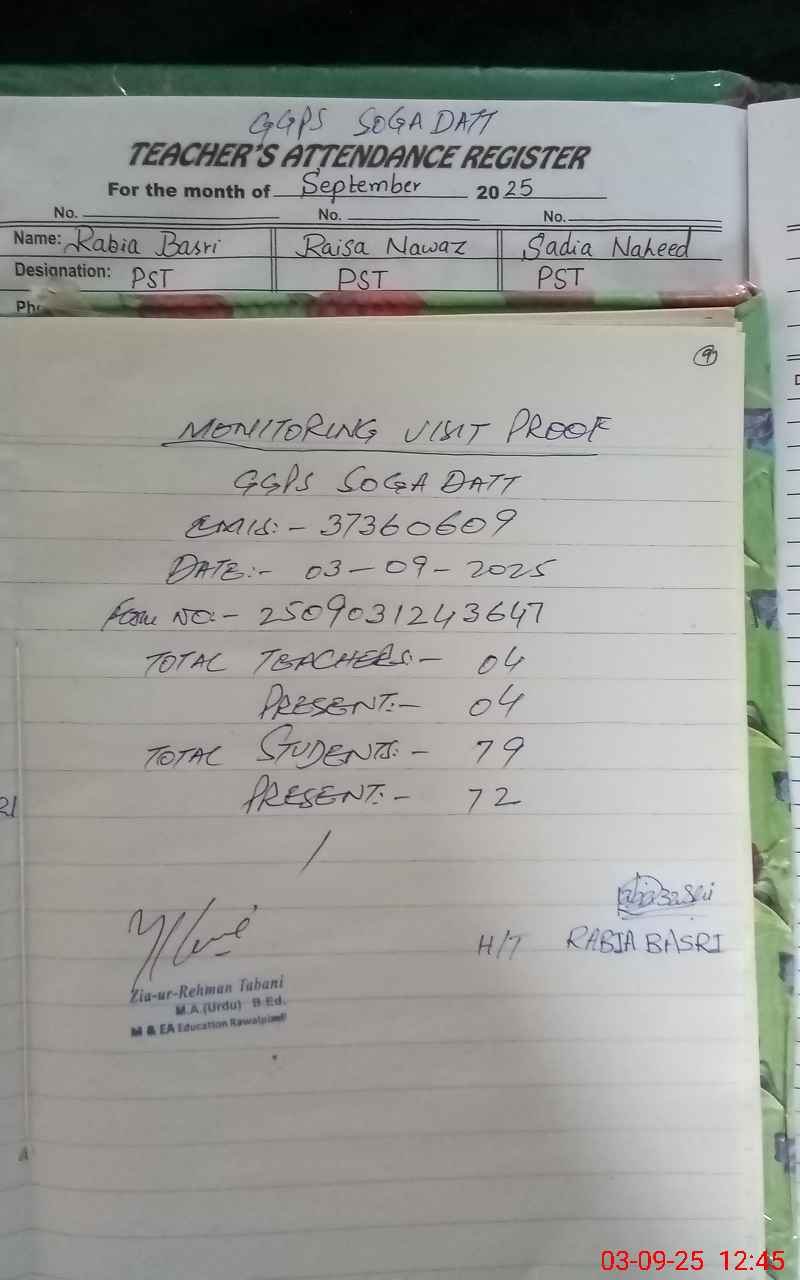 GGPS SOGA DATT
TEACHER'S ATTENDANCE REGISTER
For the month of September 2025
No. No. No.
Name: Rabia Basri Raisa Nawaz Sadia Naheed
Designation: PST PST PST
9
MONITORING VISIT PROOF
GGPS SOGA DATT
EMIS:- 37360609
DATE:- 03-09-2025
FORM NO:- 2509031243647
TOTAL TEACHERS:- 04
PRESENT:- 04
TOTAL STUDENTS:- 79
PRESENT:- 72
21
H/T RABIA BASRI
Zia-ur-Rehman Tabani
M.A.(Urdu) B.Ed.
M & EA Education Rawalpindi
03-09-25 12:45